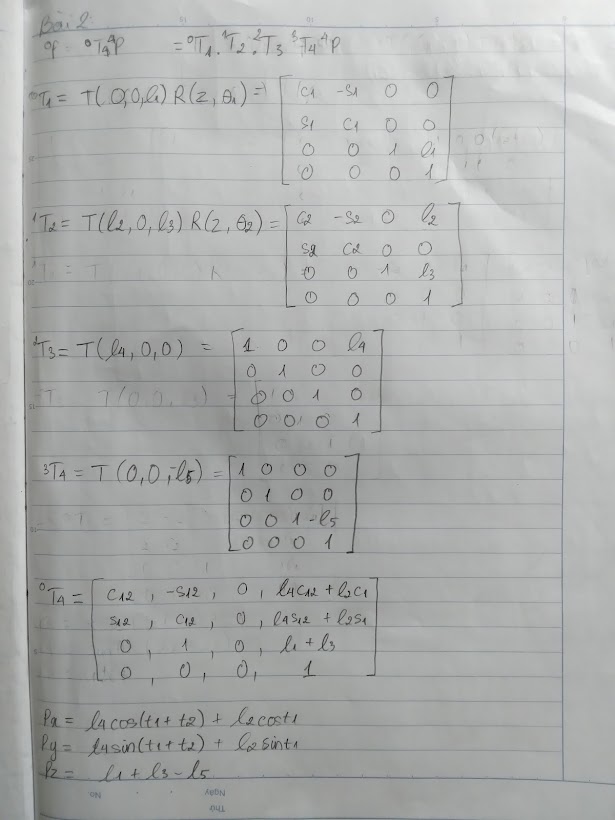 Bài 2
⁰P = ⁰T₄⁴P = ⁰T₁.¹T₂.²T₃ ³T₄⁴P
⁰T₁ = T(0,0,l₁) R(z, θ₁) = [ c₁ -s₁ 0 0
s₁ c₁ 0 0
0 0 1 l₁
0 0 0 1 ]
¹T₂ = T(l₂, 0, l₃) R(z, θ₂) = [ c₂ -s₂ 0 l₂
s₂ c₂ 0 0
0 0 1 l₃
0 0 0 1 ]
²T₃ = T(l₄, 0, 0) = [ 1 0 0 l₄
0 1 0 0
0 0 1 0
0 0 0 1 ]
³T₄ = T (0,0,-l₅) = [ 1 0 0 0
0 1 0 0
0 0 1 -l₅
0 0 0 1 ]
⁰T₄ = [ c₁₂ , -s₁₂ , 0 , l₄c₁₂ + l₂c₁
s₁₂ , c₁₂ , 0 , l₄s₁₂ + l₂s₁
0 , 1 , 0 , l₁ + l₃
0 , 0 , 0 , 1 ]
Px = l₄cos(t₁ + t₂) + l₂cost₁
Py = l₄sin(t₁ + t₂) + l₂sint₁
Pz = l₁ + l₃ - l₅
Ngày No.
Thứ